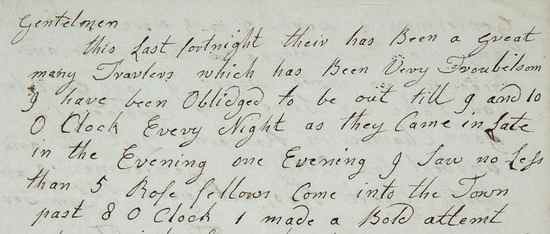 Gentelmen
this Last fortnight their has Been a great
many Travlers which has Been Very Troubelsom
I have been Oblidged to be out till 9 and 10
O Clock Every Night as they Came in Late
in the Evening one Evening I Saw no Less
than 5 Rose fellows Come into the Town
past 8 O Clock I made a Bold attemt